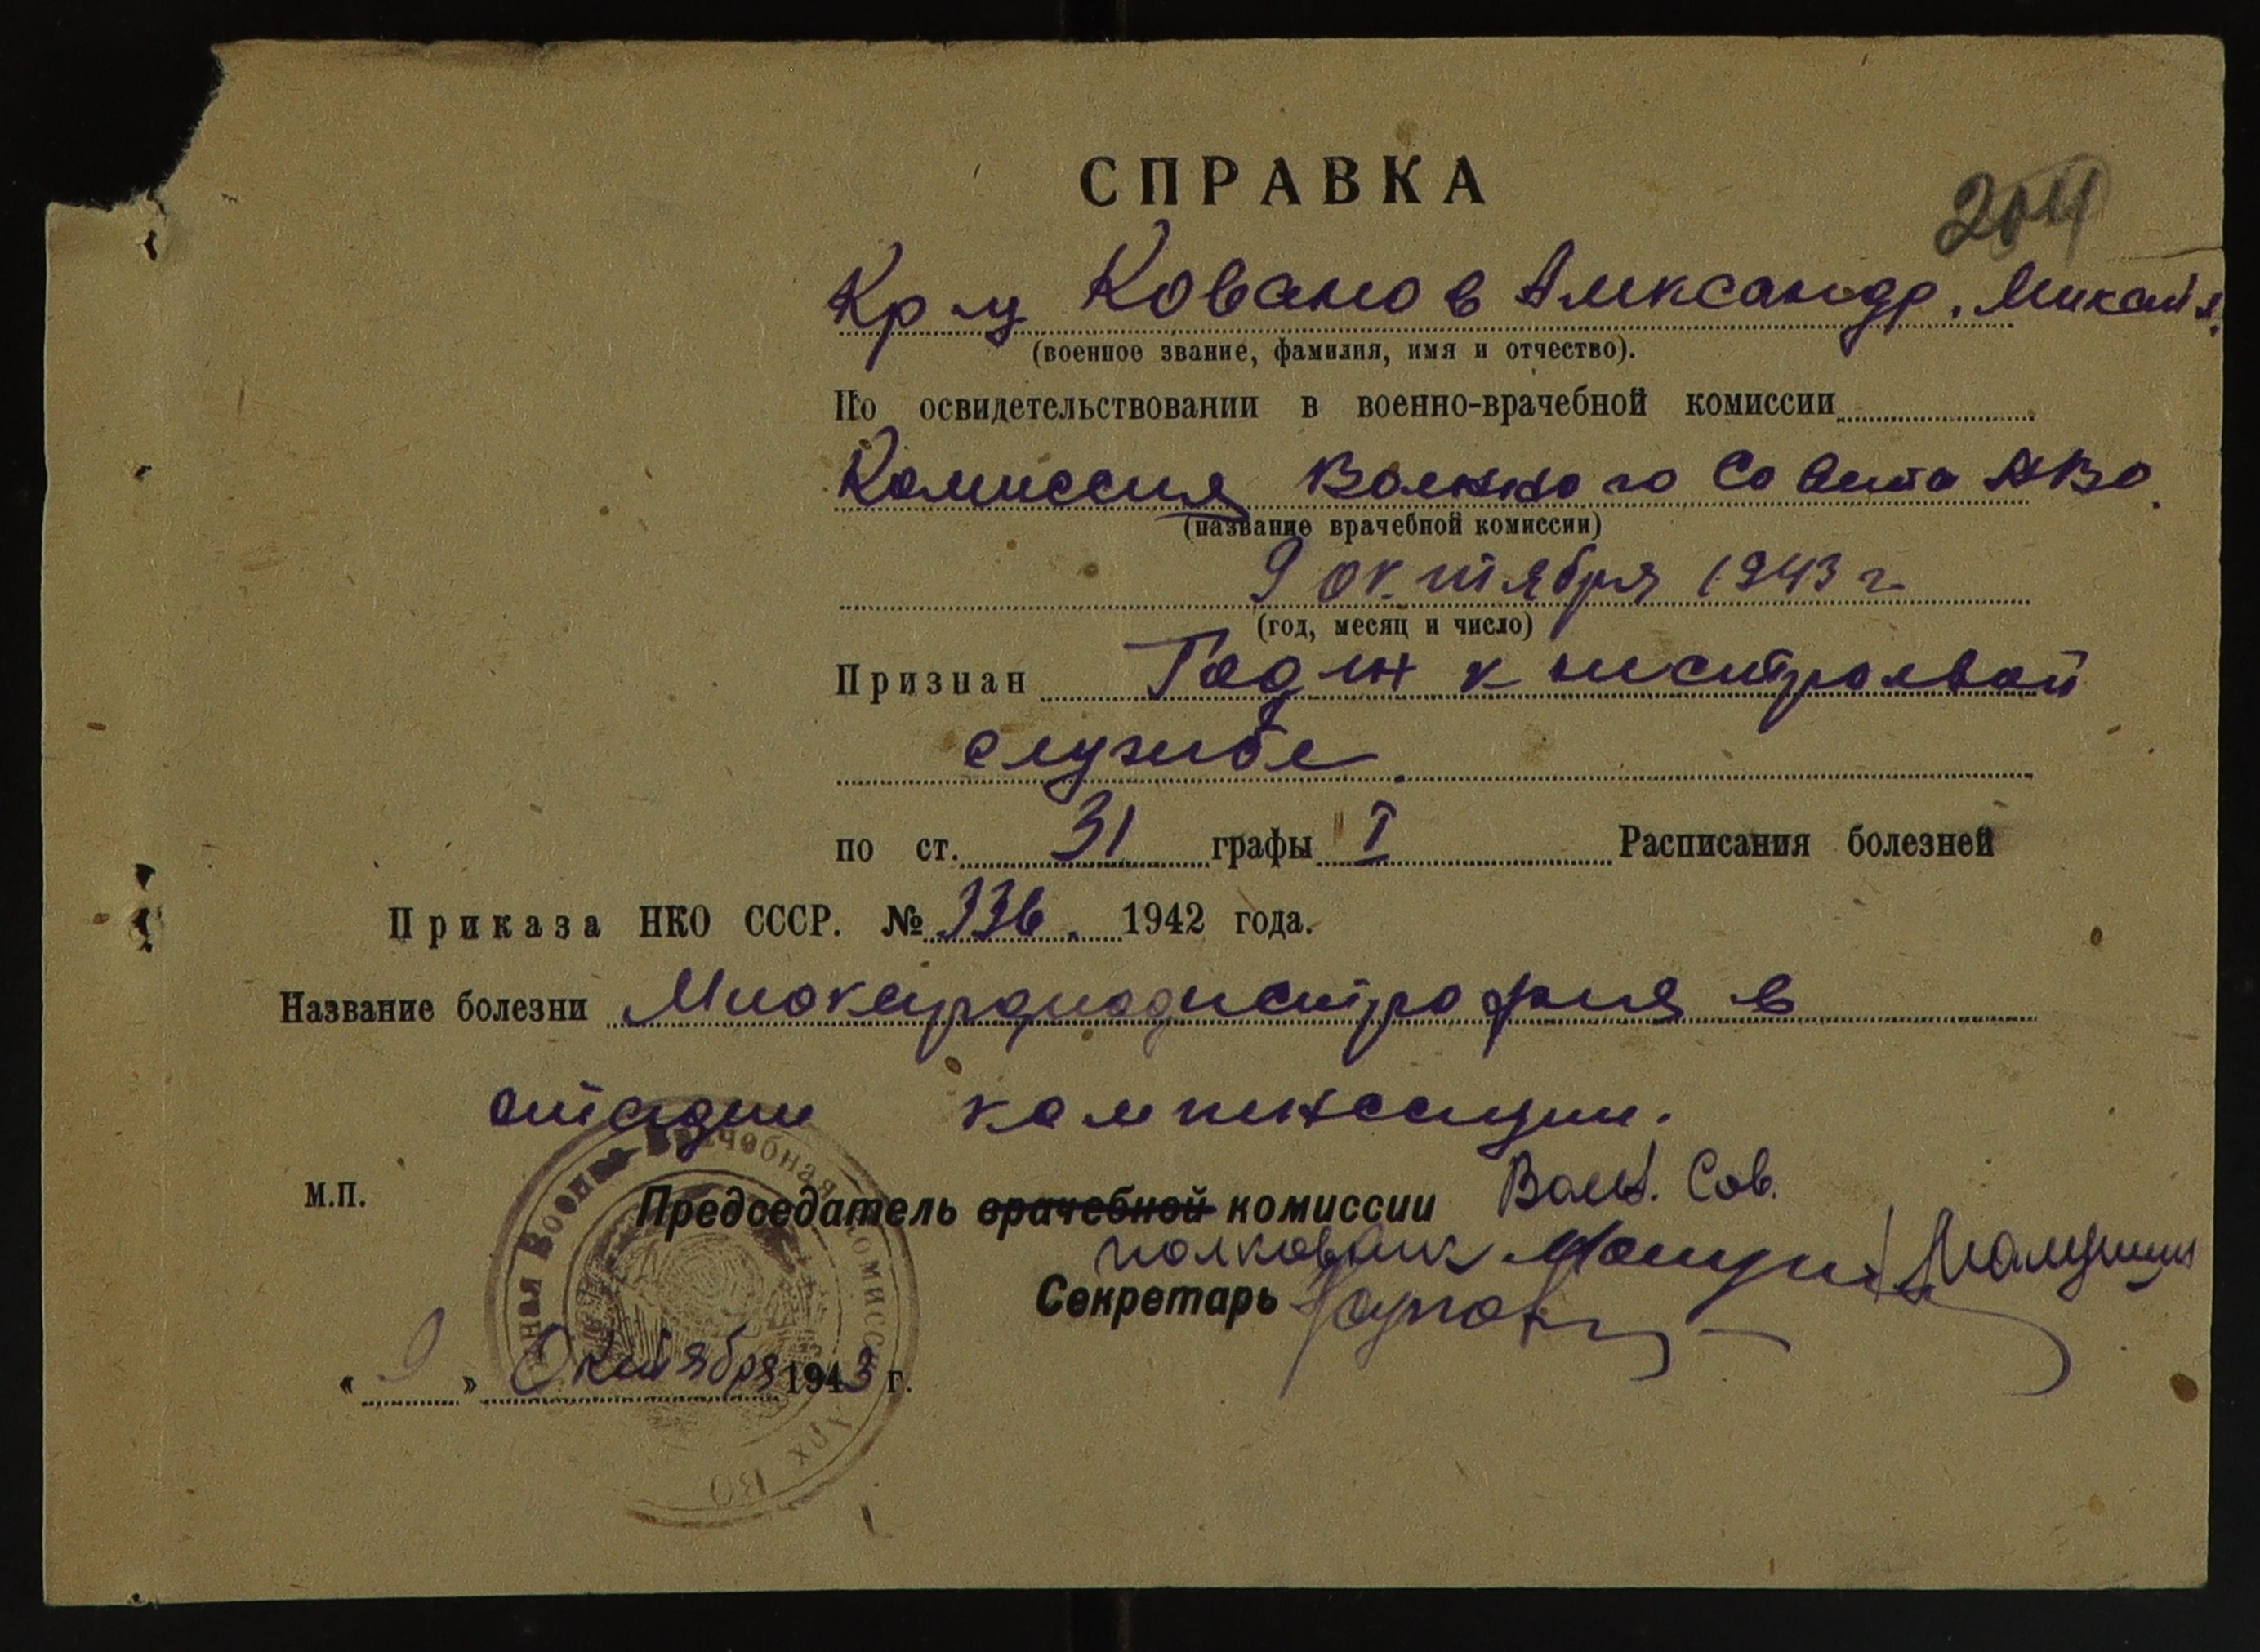 СПРАВКА
204
Кр-ц Кованов Александр. Михайл.
(военное звание, фамилия, имя и отчество).
По освидетельствовании в военно-врачебной комиссии
Комиссия Военного Совета АВО.
(название врачебной комиссии)
9 октября 1943 г
(год, месяц и число)
Признан Годен к нестроевой
службе.
по ст. 31 графы I Расписания болезней
Приказа НКО СССР. № 336. 1942 года.
Название болезни Миокардиодистрофия в
стадии компенсации.
М.П.
Председатель врачебной комиссии Воен. Сов.
полковник
Секретарь
« 9 » Октября 1943 г.
ная Военно-Врачебная Комиссия Арх ВО